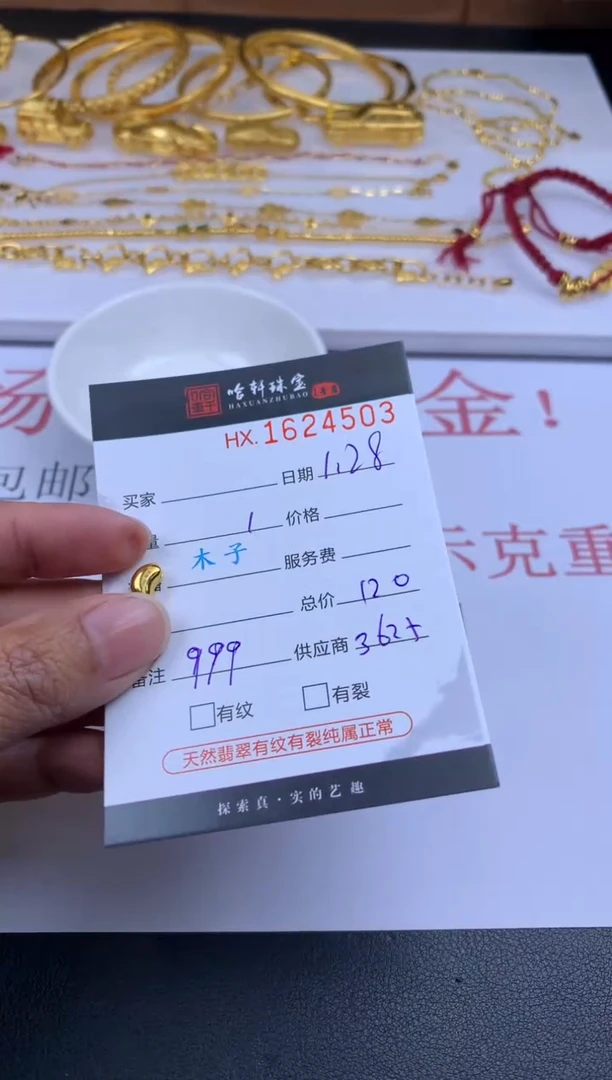 哈轩珠宝
HAXUANZHUBAO
HX.1624503
买家 日期 1.28
量 1 价格
木子 服务费
总价 120
备注 999 供应商 362大
有纹 有裂
天然翡翠有纹有裂纯属正常
探索真·实的艺趣
金!
包邮
示克重